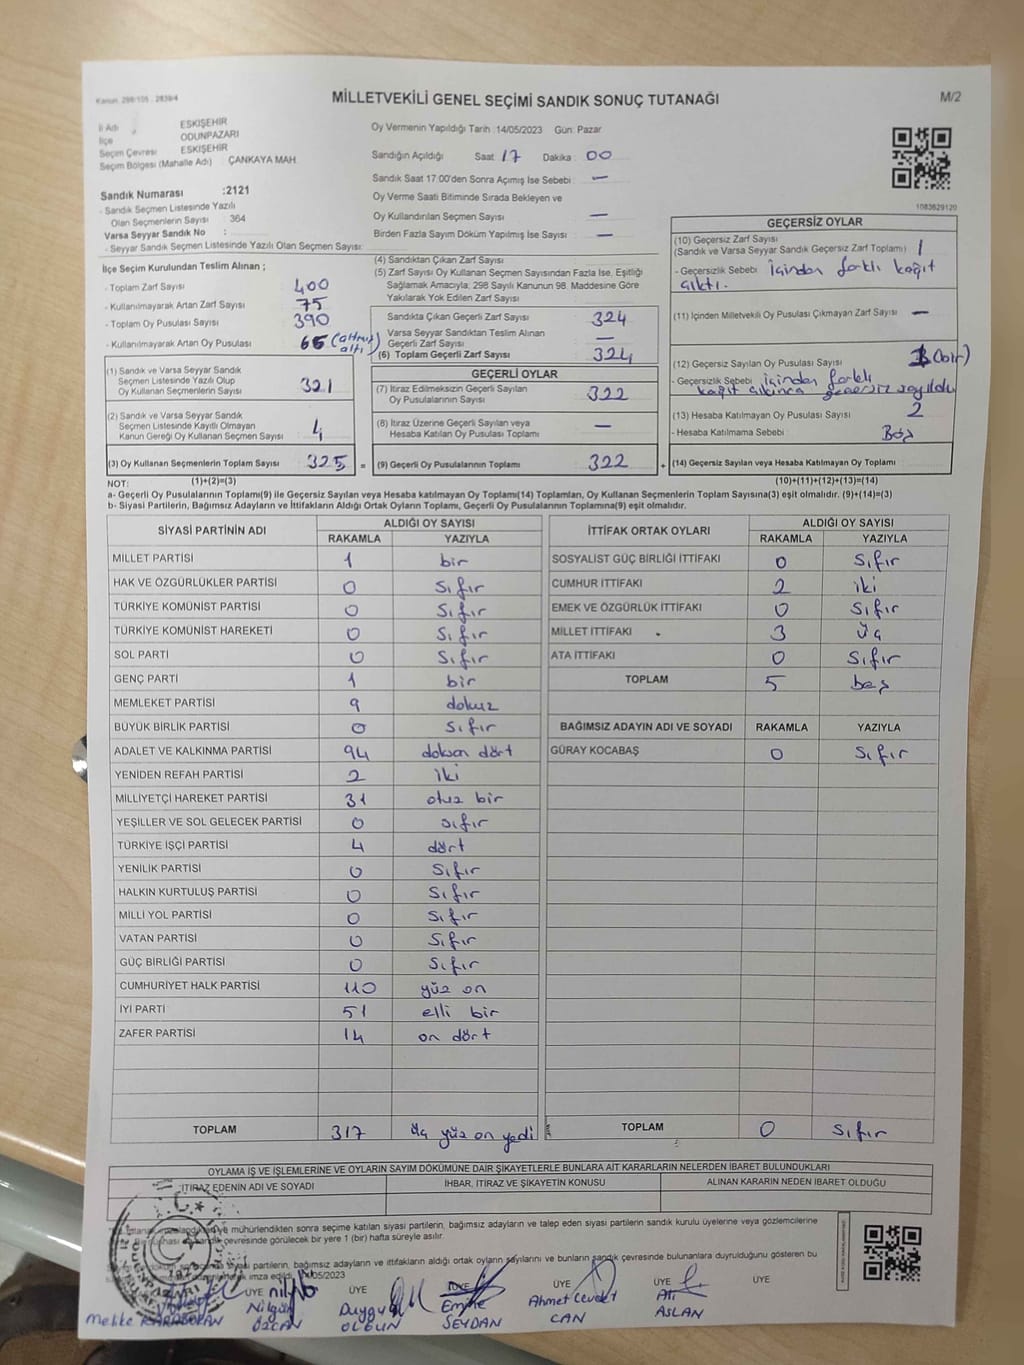 Kanun: 298/105 - 2839/4
MİLLETVEKİLİ GENEL SEÇİMİ SANDIK SONUÇ TUTANAĞI
M/2
İl Adı ESKİŞEHİR
İlçe ODUNPAZARI
Seçim Çevresi ESKİŞEHİR
Seçim Bölgesi (Mahalle Adı) ÇANKAYA MAH.
Oy Vermenin Yapıldığı Tarih :14/05/2023 Gün: Pazar
Sandığın Açıldığı Saat 17 Dakika 00
Sandık Saat 17.00'den Sonra Açımış İse Sebebi : —
Oy Verme Saati Bitiminde Sırada Bekleyen ve
Oy Kullandırılan Seçmen Sayısı —
Birden Fazla Sayım Döküm Yapılmış İse Sayısı —
1083629120
Sandık Numarası :2121
- Sandık Seçmen Listesinde Yazılı
Olan Seçmenlerin Sayısı 364
Varsa Seyyar Sandık No :
- Seyyar Sandık Seçmen Listesinde Yazılı Olan Seçmen Sayısı:
İlçe Seçim Kurulundan Teslim Alınan ;
- Toplam Zarf Sayısı 400
- Kullanılmayarak Artan Zarf Sayısı 75
- Toplam Oy Pusulası Sayısı 390
- Kullanılmayarak Artan Oy Pusulası 66 (altmış altı)
(1) Sandık ve Varsa Seyyar Sandık
Seçmen Listesinde Yazılı Olup
Oy Kullanan Seçmenlerin Sayısı 321
(2) Sandık ve Varsa Seyyar Sandık
Seçmen Listesinde Kayıtlı Olmayan
Kanun Gereği Oy Kullanan Seçmen Sayısı 4
(3) Oy Kullanan Seçmenlerin Toplam Sayısı 325 =
(1)+(2)=(3)
(4) Sandıktan Çıkan Zarf Sayısı
(5) Zarf Sayısı Oy Kullanan Seçmen Sayısından Fazla İse, Eşitliği
Sağlamak Amacıyla; 298 Sayılı Kanunun 98. Maddesine Göre
Yakılarak Yok Edilen Zarf Sayısı
Sandıkta Çıkan Geçerli Zarf Sayısı 324
Varsa Seyyar Sandıktan Teslim Alınan
Geçerli Zarf Sayısı —
(6) Toplam Geçerli Zarf Sayısı 324
GEÇERLİ OYLAR
(7) İtiraz Edilmeksizin Geçerli Sayılan
Oy Pusulalarının Sayısı 322
(8) İtiraz Üzerine Geçerli Sayılan veya
Hesaba Katılan Oy Pusulası Toplamı —
(9) Geçerli Oy Pusulalarının Toplamı 322 +
GEÇERSİZ OYLAR
(10) Geçersiz Zarf Sayısı
(Sandık ve Varsa Seyyar Sandık Geçersiz Zarf Toplamı) 1
- Geçersizlik Sebebi İçinden farklı kağıt
çıktı.
(11) İçinden Milletvekili Oy Pusulası Çıkmayan Zarf Sayısı —
(12) Geçersiz Sayılan Oy Pusulası Sayısı (bir)
- Geçersizlik Sebebi içinden farklı
kağıt çıkınca geçersiz sayıldı
(13) Hesaba Katılmayan Oy Pusulası Sayısı 2
- Hesaba Katılmama Sebebi : Boş
(14) Geçersiz Sayılan veya Hesaba Katılmayan Oy Toplamı
(10)+(11)+(12)+(13)=(14)
NOT:
a- Geçerli Oy Pusulalarının Toplamı(9) ile Geçersiz Sayılan veya Hesaba katılmayan Oy Toplamı(14) Toplamları, Oy Kullanan Seçmenlerin Toplam Sayısına(3) eşit olmalıdır. (9)+(14)=(3)
b- Siyasi Partilerin, Bağımsız Adayların ve İttifakların Aldığı Ortak Oyların Toplamı, Geçerli Oy Pusulalarının Toplamına(9) eşit olmalıdır.
SİYASİ PARTİNİN ADI ALDIĞI OY SAYISI
RAKAMLA YAZIYLA
MİLLET PARTİSİ 1 bir
HAK VE ÖZGÜRLÜKLER PARTİSİ 0 Sıfır
TÜRKİYE KOMÜNİST PARTİSİ 0 Sıfır
TÜRKİYE KOMÜNİST HAREKETİ 0 Sıfır
SOL PARTİ 0 Sıfır
GENÇ PARTİ 1 bir
MEMLEKET PARTİSİ 9 dokuz
BÜYÜK BİRLİK PARTİSİ 0 Sıfır
ADALET VE KALKINMA PARTİSİ 94 doksan dört
YENİDEN REFAH PARTİSİ 2 iki
MİLLİYETÇİ HAREKET PARTİSİ 31 otuz bir
YEŞİLLER VE SOL GELECEK PARTİSİ 0 sıfır
TÜRKİYE İŞÇİ PARTİSİ 4 dört
YENİLİK PARTİSİ 0 Sıfır
HALKIN KURTULUŞ PARTİSİ 0 Sıfır
MİLLİ YOL PARTİSİ 0 Sıfır
VATAN PARTİSİ 0 Sıfır
GÜÇ BİRLİĞİ PARTİSİ 0 Sıfır
CUMHURİYET HALK PARTİSİ 110 yüz on
İYİ PARTİ 51 elli bir
ZAFER PARTİSİ 14 on dört
TOPLAM 317 Üç yüz on yedi
İTTİFAK ORTAK OYLARI ALDIĞI OY SAYISI
RAKAMLA YAZIYLA
SOSYALİST GÜÇ BİRLİĞİ İTTİFAKI 0 Sıfır
CUMHUR İTTİFAKI 2 iki
EMEK VE ÖZGÜRLÜK İTTİFAKI 0 Sıfır
MİLLET İTTİFAKI 3 Üç
ATA İTTİFAKI 0 Sıfır
TOPLAM 5 beş
BAĞIMSIZ ADAYIN ADI VE SOYADI RAKAMLA YAZIYLA
GÜRAY KOCABAŞ 0 Sıfır
TOPLAM 0 Sıfır
OYLAMA İŞ VE İŞLEMLERİNE VE OYLARIN SAYIM DÖKÜMÜNE DAİR ŞİKAYETLERLE BUNLARA AİT KARARLARIN NELERDEN İBARET BULUNDUKLARI
İTİRAZ EDENİN ADI VE SOYADI İHBAR, İTİRAZ VE ŞİKAYETİN KONUSU ALINAN KARARIN NEDEN İBARET OLDUĞU
mühürlendikten sonra seçime katılan siyasi partilerin, bağımsız adayların ve talep eden siyasi partilerin sandık kurulu üyelerine veya gözlemcilerine
çevresinde görülecek bir yere 1 (bir) hafta süreyle asılır.
siyasi partilerin, bağımsız adayların ve ittifakların aldığı ortak oyların sayılarını ve bunların sandık çevresinde bulunanlara duyrulduğunu gösteren bu
imza edildi. 14/05/2023
ÜYE ÜYE ÜYE ÜYE ÜYE ÜYE
Nilgün Duygu Emine Ahmet Cevdet Ali
ÖZCAN OLGUN SEYDAN CAN ASLAN